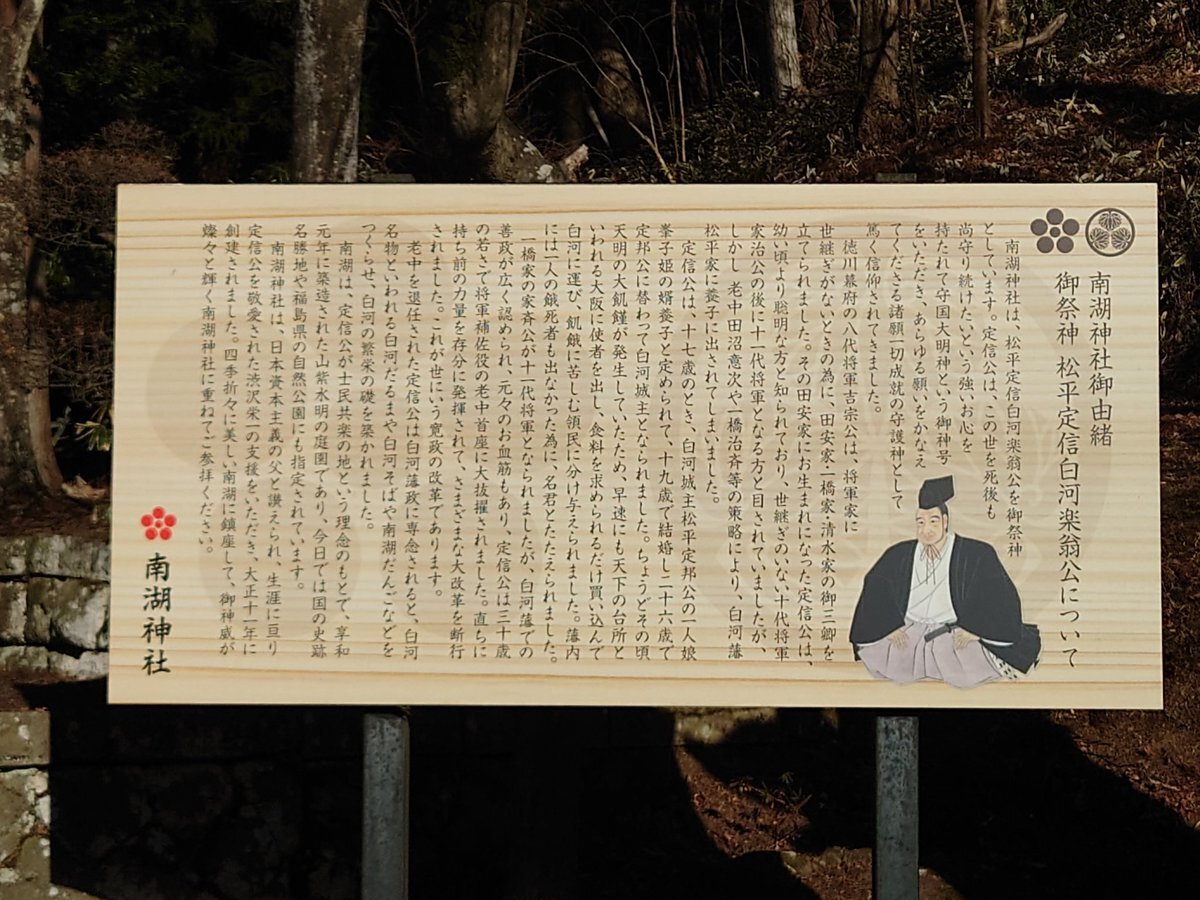 南湖神社御由緒
御祭神 松平定信白河楽翁公について
南湖神社は、松平定信白河楽翁公を御祭神
としています。定信公は、この世を死後も
尚守り続けたいという強いお心を
持たれて守国大明神という御神号
をいただき、あらゆる願いをかなえ
てくださる諸願一切成就の守護神として
篤く信仰されてきました。
徳川幕府の八代将軍吉宗公は、将軍家に
世継ぎがないときの為に、田安家・一橋家・清水家の御三卿を
立てられました。その田安家にお生まれになった定信公は、
幼い頃より聡明な方と知られており、世継ぎのいない十代将軍
家治公の後に十一代将軍となる方と目されていましたが、
しかし 老中田沼意次や一橋治斉等の策略により、白河藩
松平家に養子に出されてしまいました。
定信公は、十七歳のとき、白河城主松平定邦公の一人娘
峯子姫の婿養子と定められて、十九歳で結婚し二十六歳で
定邦公に替わって白河城主となられました。ちょうどその頃
天明の大飢饉が発生していたため、早速にも天下の台所と
いわれる大阪に使者を出し、食料を求められるだけ買い込んで
白河に運び、飢餓に苦しむ領民に分け与えられました。藩内
には一人の餓死者も出なかった為に、名君とたたえられました。
一橋家の家斉公が十一代将軍となられましたが、白河藩での
善政が広く認められ、元々のお血筋もあり、定信公は三十歳
の若さで将軍補佐役の老中首座に大抜擢されました。直ちに
持ち前の力量を存分に発揮されて、さまざまな大改革を断行
されました。これが世にいう寛政の改革であります。
老中を退任された定信公は白河藩政に専念されると、白河
名物といわれる白河だるまや白河そばや南湖だんごなどを
つくらせ、白河の繁栄の礎を築かれました。
南湖は、定信公が士民共楽の地という理念のもとで、享和
元年に築造された山紫水明の庭園であり、今日では国の史跡
名勝地や福島県の自然公園にも指定されています。
南湖神社は、日本資本主義の父と讃えられ、生涯に亘り
定信公を敬愛された渋沢栄一の支援をいただき、大正十一年に
創建されました。四季折々に美しい南湖に鎮座して、御神威が
燦々と輝く南湖神社に重ねてご参拝ください。
南湖神社